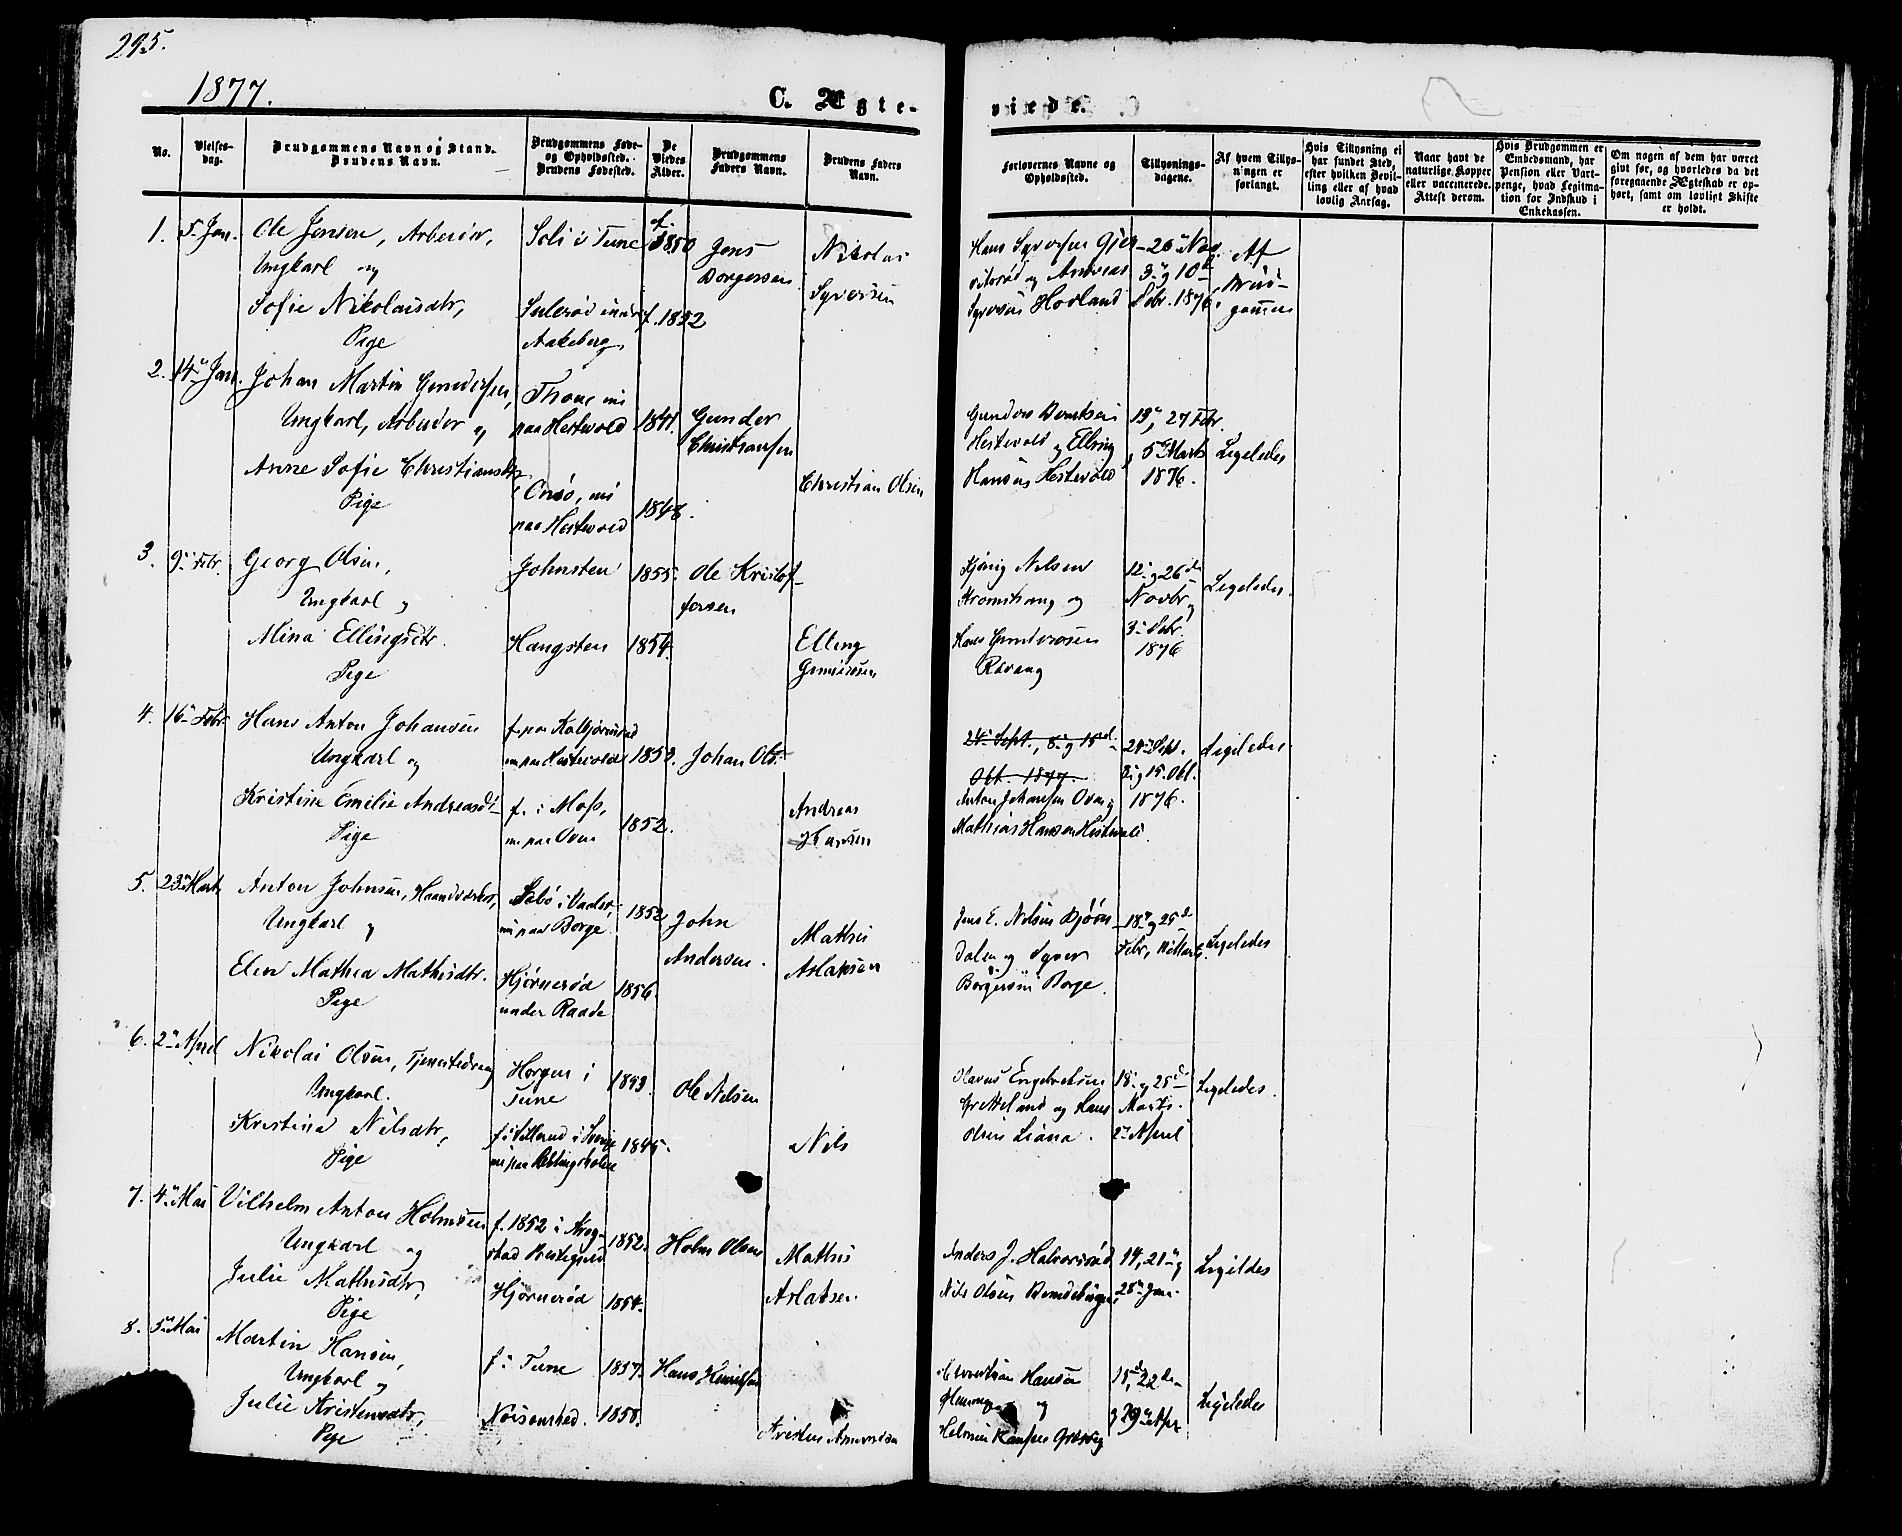 295.
1877.
C. Ægte-
viede.
No.
Vielses-
dag.
Brudgommens Navn og Stand.
Brudens Navn.
Brudgommens Føde-
og Opholdssted.
Brudens Fødested.
De
Viedes
Alder.
Brudgommens
Faders Navn.
Brudens Faders
Navn.
Forlovernes Navne og
Opholdssted.
Tillysnings-
dagene.
Af hvem Tillys-
ningen er
forlangt.
Hvis Tillysning ei
har fundet Sted,
efter hvilken Bevil-
ling eller af hvad
lovlig Aarsag.
Naar havt de
naturlige Kopper
eller vaccinerede.
Attest derom.
Hvis Brudgommen er
Embedsmand, har
Pension eller Vart-
penge, hvad Legitima-
tion for Indskud i
Enkekassen.
Om nogen af dem har været
givt før, og hvorledes da det
foregaaende Ægteskab er op-
hørt, samt om lovligt Skifte
er holdt.
1. 5. Jan. Ole Jensen, Arbeider, Soli i Tune f. 1850 Jens Nikolai
Ungkarl og Borgersen Syversen
Sofie Nikolaisdtr, f. 1852
Pige Aakeberg
Hans Syversen 26 Nov. Af
og Andreas 3 og 10 Brud-
Syversen Hovland Debr. 1876 gommen
2. 14 Jan. Johan Martin Gundersen, Thone, nu
Ungkarl, Arbeider og paa Hestevold 1844. Gunder
Christiansen
Anne Sofie Christiansdtr, Onsø, nu Christian Olsen
Pige paa Hestevold 1848.
Gunder Berntsen 19, 27 Febr.
Hestevold og Elling 5 Marts Ligeledes
Hansen Hestevold 1876.
3. 9. Febr. Georg Olsen, Johnsten 1855. Ole Kristof-
Ungkarl og fersen
Mina Ellingsdtr. Haugsten 1854. Elling
Pige Gundersen
Nilsen 12 og 26de Ligeledes.
og Novbr og
Hans Gundersen 3 Debr.
Ravang 1876
4. 16 Febr. Hans Anton Johansen f. paa
Ungkarl og nu paa Hestevold 1853. Johan Ols.
Kristine Emilie Andreasdt f. i Moss, 1852. Andreas
Pige nu paa Oven Hansen
24 Sept., 8 og 15 24 Sept. Ligeledes
Okt. 1877. 8 og 15. Okt.
Anton Johansen Oven og 1876.
Mathias Hansen Hestevold.
5. 23 Marts Anton Johnsen, Haandværker, i Vaaler, 1852 John
Ungkarl og nu paa Borge. Andersen.
Elen Mathea Mathisdtr. Hjørnerød 1856. Mathis
Pige under Raade Aslaksen
Jens E. Nilsen Bjørn- 18 og 25de Ligeledes
dalen og Syver Febr, Marts.
Borgersen Borge.
6. 2 April Nikolai Olsen, Tjenestedreng Horgen i 1849. Ole Nilsen
Ungkarl. Tune
Kristina Nilsdtr, i Sverige 1845. Nils
Pige nu paa
Olavus Engebretsen 18 og 25de Ligeledes.
Gretteland og Hans Marts.
Olsen Liana. 2 April
7. 4 Mai Vilhelm Anton Holmsen f. 1852 i Krog- 1852. Holm Olsen
Ungkarl og stad Præstegjeld
Julie Mathisdtr, Hjørnerød 1854. Mathis
Pige Aslaksen
Anders J. Halvorsrød 14, 21 og Ligeledes
Nils Olsen 28 Jan.
8. 5 Mai Martin Hansen, f. i Tune 1857. Hans Henriksen
Ungkarl og
Julie Kristensdtr, 1858. Kristen
Pige
Christian Hansen 15de, 22de Ligeledes
og og 29 Apr